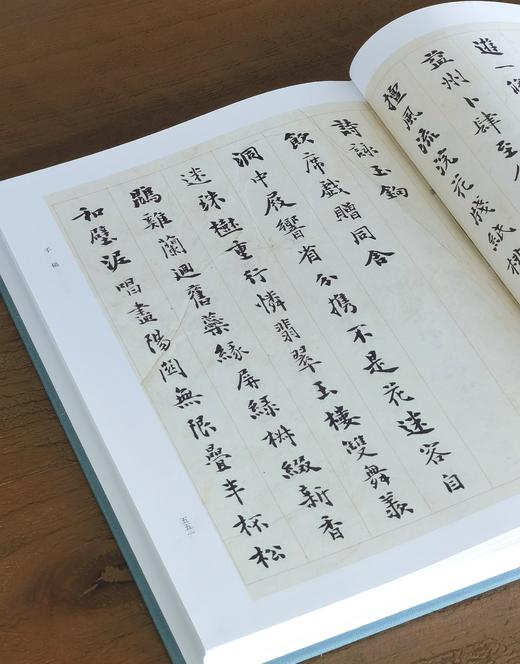 進一
益州卜肆至
擅風流浣花牋紙桃
詩詠玉鉤
飲席戲贈同舍
洞中屐響省分攜不是花迷客自
迷珠樹重行憐翡翠玉樓雙舞羨
鵾雞蘭迴舊蘂緣屏綠椒綴新香
和壁泥唱盡陽關無限疊半杯松
手稿
五五一